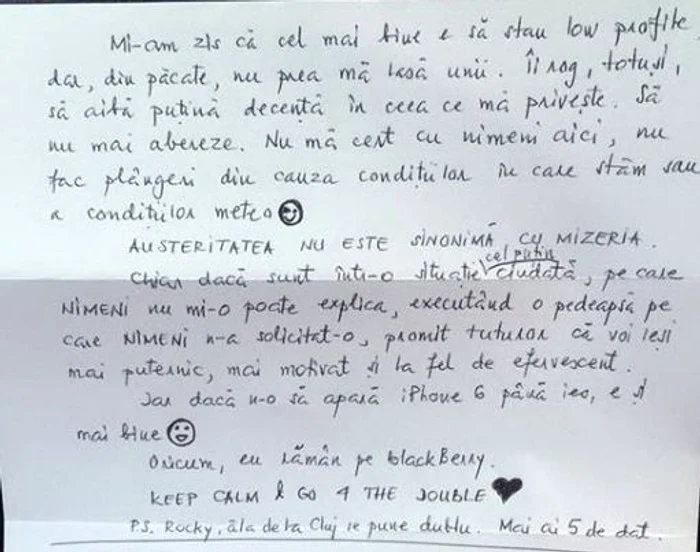 Mi-am zis că cel mai bine e să stau low profile,
dar, din păcate, nu prea mă lasă unii. Îi rog, totuși,
să aibă puțină decență în ceea ce mă privește. Să
nu mai abereze. Nu mă cert cu nimeni aici, nu
fac plângeri din cauza condițiilor în care stăm sau
a condițiilor meteo ☺
AUSTERITATEA NU ESTE SINONIMĂ CU MIZERIA.
Chiar dacă sunt într-o situație cel puțin ciudată, pe care
NIMENI nu mi-o poate explica, executând o pedeapsă pe
care NIMENI n-a solicitat-o, promit tuturor că voi ieși
mai puternic, mai motivat și la fel de efervescent.
Iar dacă n-o să apară iPhone 6 până ies, e și
mai bine ☺
Oricum, eu rămân pe blackBerry.
KEEP CALM & GO 4 THE DOUBLE ♥
P.S. Rocky, ăla de la Cluj se pune dublu. Mai ai 5 de dat.